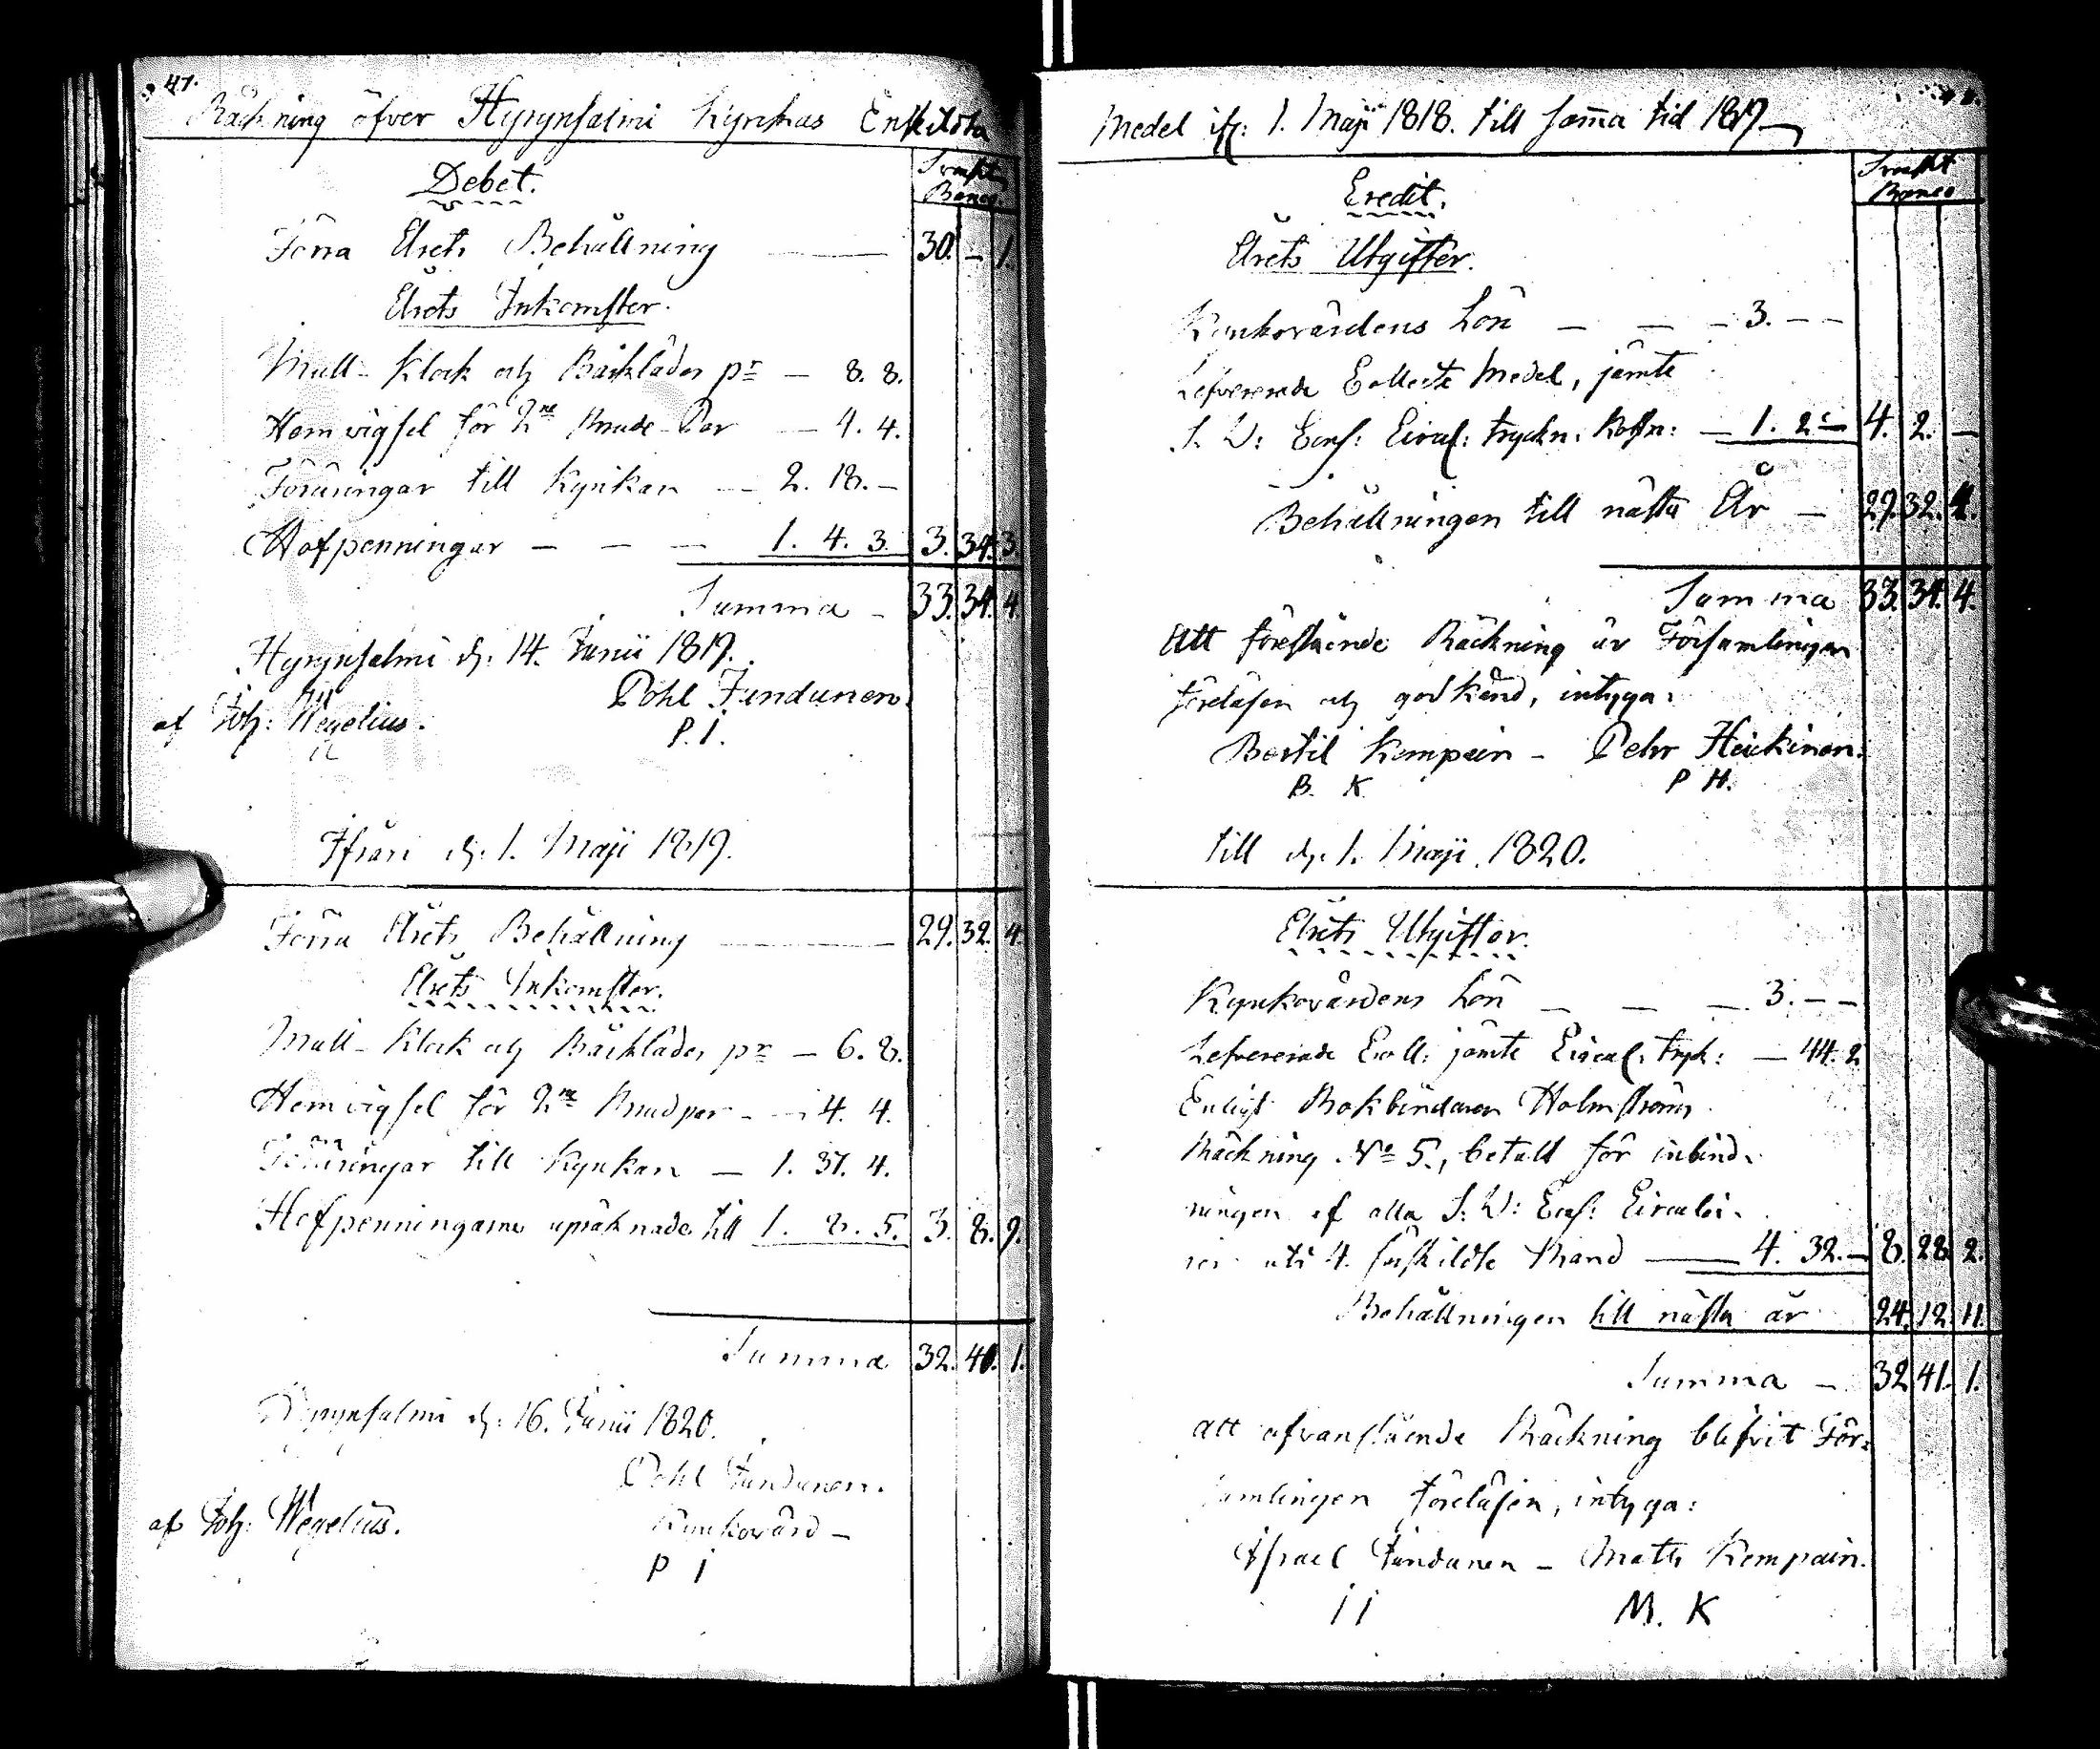 47.
Räckning öfver Hyrynsalmi Kyrckas Enskilda
Debet.
Svenskt Banco.
Förra Årets Behållning — 30. — 1.
Årets Inkomster.
Mull- Klock och Bårkläder pr — 8. 8.
Hemvigsel för 2ne Brude Par — 4. 4.
Föräringar till Kyrkan — 2. 18. —
Hofpenningar — — — 1. 4. 3. 3. 34. 3.
Summa — 33. 34. 4.
Hyrynsalmi d: 14. Junii 1819.
af Joh: Wegelius. Pohl Jundunen.
P. I.
Ifrån d: 1. Maji 1819.
Förra Årets Behållning — 29. 32. 4.
Årets Inkomster.
Mull- Klock och Bårkläder pr — 6. 8.
Hemvigsel för 2ne Brudpar — 4. 4.
Föräringar till Kyrkan — 1. 37. 4.
Hofpenningarne upräknade till 1. 8. 5. 3. 8. 9.
Summa 32. 41. 1.
Hyrynsalmi d: 16. Junii 1820.
Pohl Jundunen.
af Joh: Wegelius. Kyrkovärd —
P I
Medel ifr: 1. Maji 1818. till samma tid 1819
Credit.
Svenskt Banco
Årets Utgifter.
Kyrkovärdens Lön — — — 3. — —
Lefvererade Collecte Medel, jämte
S. W: Cons: Circul: tryckn: Kostn: — 1. 2. — 4. 2. —
Behållningen till nästa År — 29. 32. 4.
Summa 33. 34. 4.
Att förestående Räckning är Församlingen
föreläsen och godkänd, intyga:
Bertil Kempain — Pehr Heickinen.
B. K. P H.
till d: 1. Maji 1820.
Årets Utgifter.
Kyrkovärdens Lön — — — 3. — —
Lefvererade Coll: jämte Circul: tryck: — 44. 2
Enligt Bokbindaren Holmströms
Räckning No 5., betalt för inbind-
ningen af alla S: W: Cons: Circulai-
rer uti 4. särskildte Band — 4. 32. — 8. 28. 2.
Behållningen till nästa år 24. 12. 11.
Summa — 32 41. 1.
Att ofvanstående Räckning blifvit För-
samlingen föreläsen, intyga:
Israel Jundunen — Mats Kempain.
I I M. K